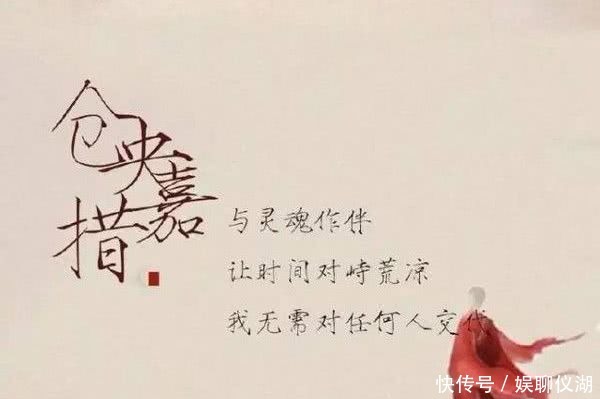 仓央嘉措
与灵魂作伴
让时间对峙荒凉
我无需对任何人交代
快传号/娱聊仪湖